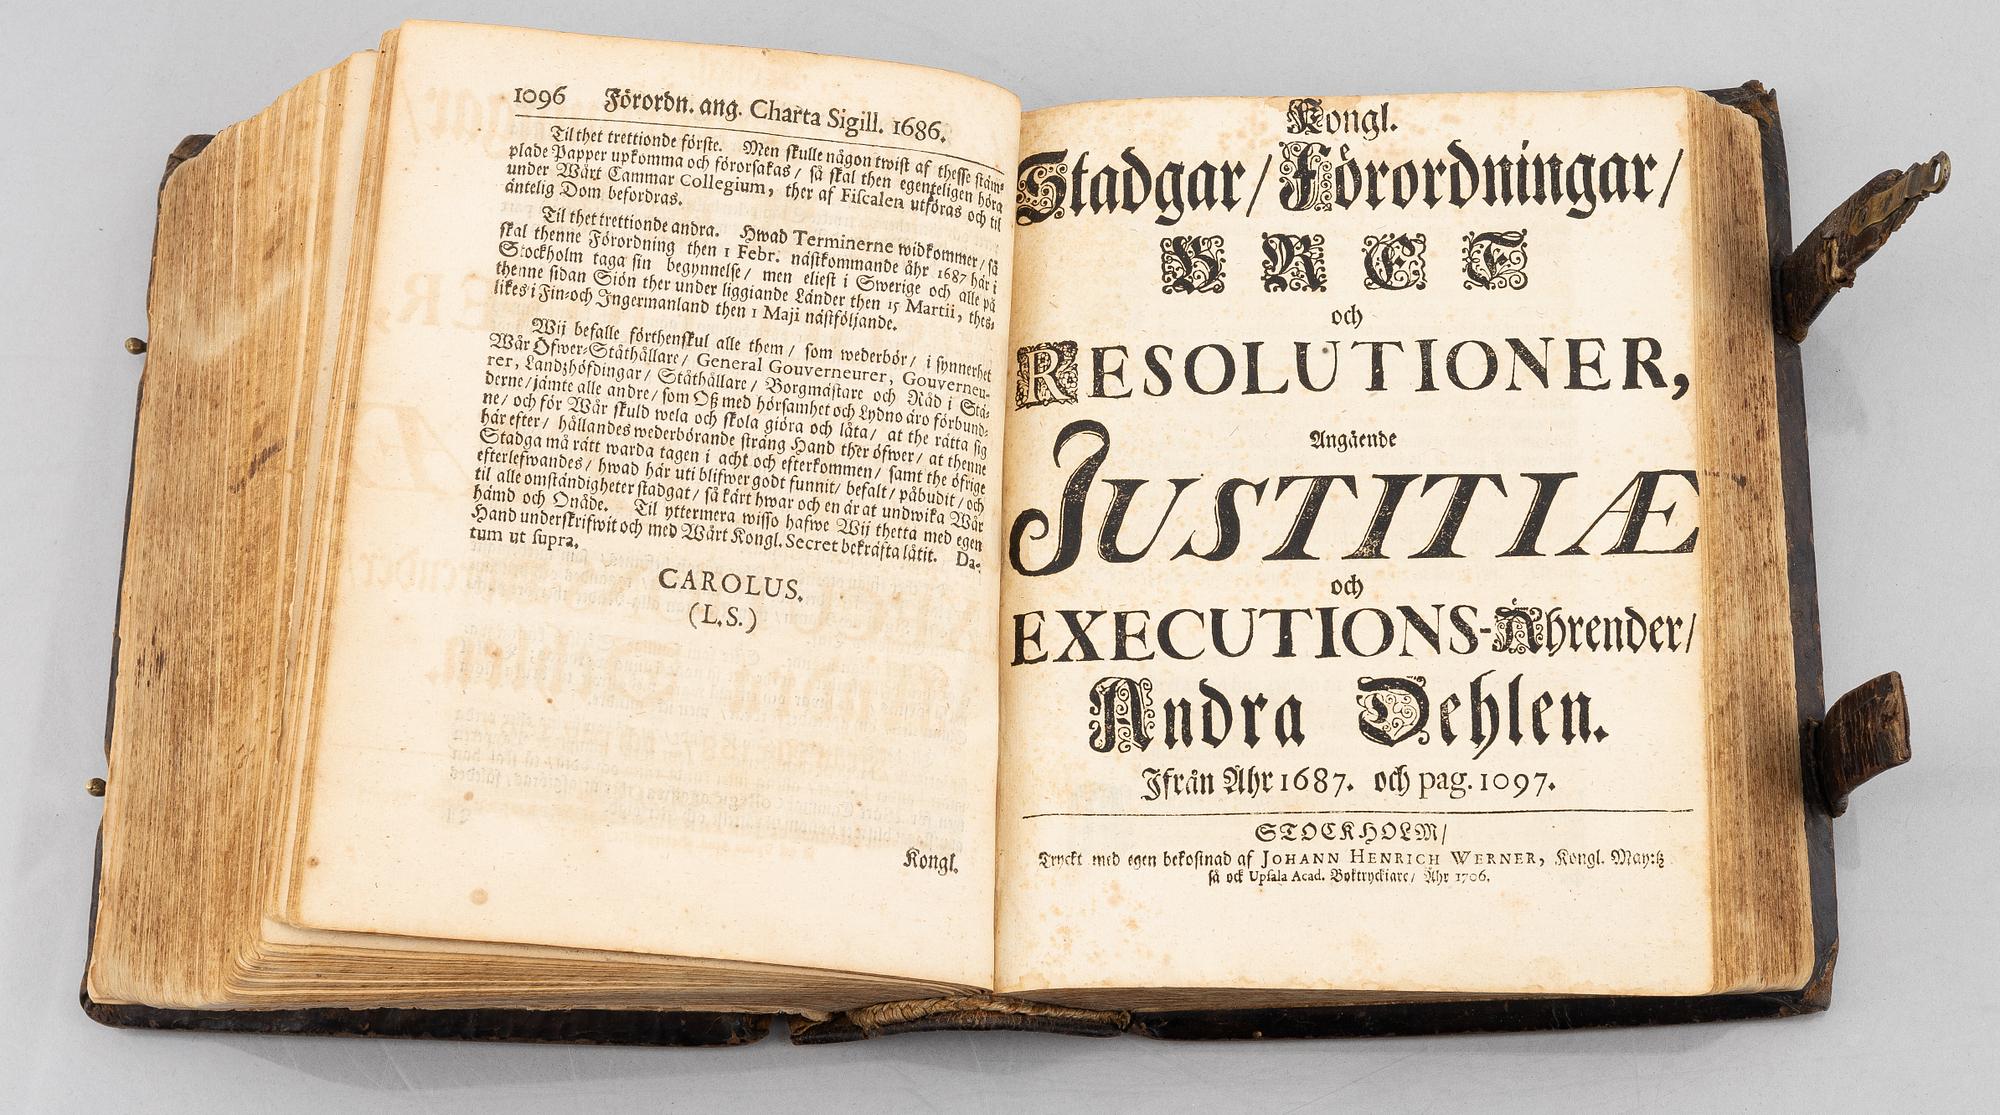 1096 Förordn. ang. Charta Sigill. 1686.
Til thet trettionde förste. Men skulle någon twist af thesse stäm-
plade Papper upkomma och förorsakas / så skal then egenteligen höra
under Wårt Cammar Collegium, ther af Fiscalen utföras och til
äntelig Dom befordras.
Til thet trettionde andra. Hwad Terminerne widkommer / så
skal thenne Förordning then 1 Febr. nästkommande åhr 1687 här i
Stockholm taga sin begynnelse / men eliest i Swerige och alle på
thenne sidan Siön ther under liggiande Länder then 15 Martii, thes-
likes i Fin- och Ingermanland then 1 Maji nästföljande.
Wij befalle förthenskul alle them / som wederbör / i synnerhet
Wår Öfwer-Ståthållare / General Gouverneurer, Gouverneu-
rer, Landzhöfdingar / Ståthållare / Borgmästare och Råd i Stä-
derne / jämte alle andre / som Oß med hörsamhet och Lydno äro förbund-
ne / och för Wår skuld wela och skola giöra och låta / at the rätta sig
här efter / hållandes wederbörande sträng Hand ther öfwer / at thenne
Stadga må rätt warda tagen i acht och efterkommen / samt the öfrige
efterlefwandes / hwad här uti blifwer godt funnit / befalt / påbudit / och
til alle omständigheter stadgat / så kärt hwar och en är at undwika Wår
hämd och Onåde. Til yttermera wisso hafwe Wij thetta med egen
Hand underskrifwit och med Wårt Kongl. Secret bekräfta låtit. Da-
tum ut supra.
CAROLUS.
(L.S.)
Kongl.
Kongl.
Stadgar / Förordningar /
BREF
och
RESOLUTIONER,
Angående
JUSTITIÆ
och
EXECUTIONS-Ährender /
Andra Dehlen.
Ifrån Åhr 1687. och pag. 1097.
STOCKHOLM /
Tryckt med egen bekostnad af JOHANN HENRICH WERNER, Kongl. May:tz
så ock Upsala Acad. Boktryckiare / Åhr 1706.